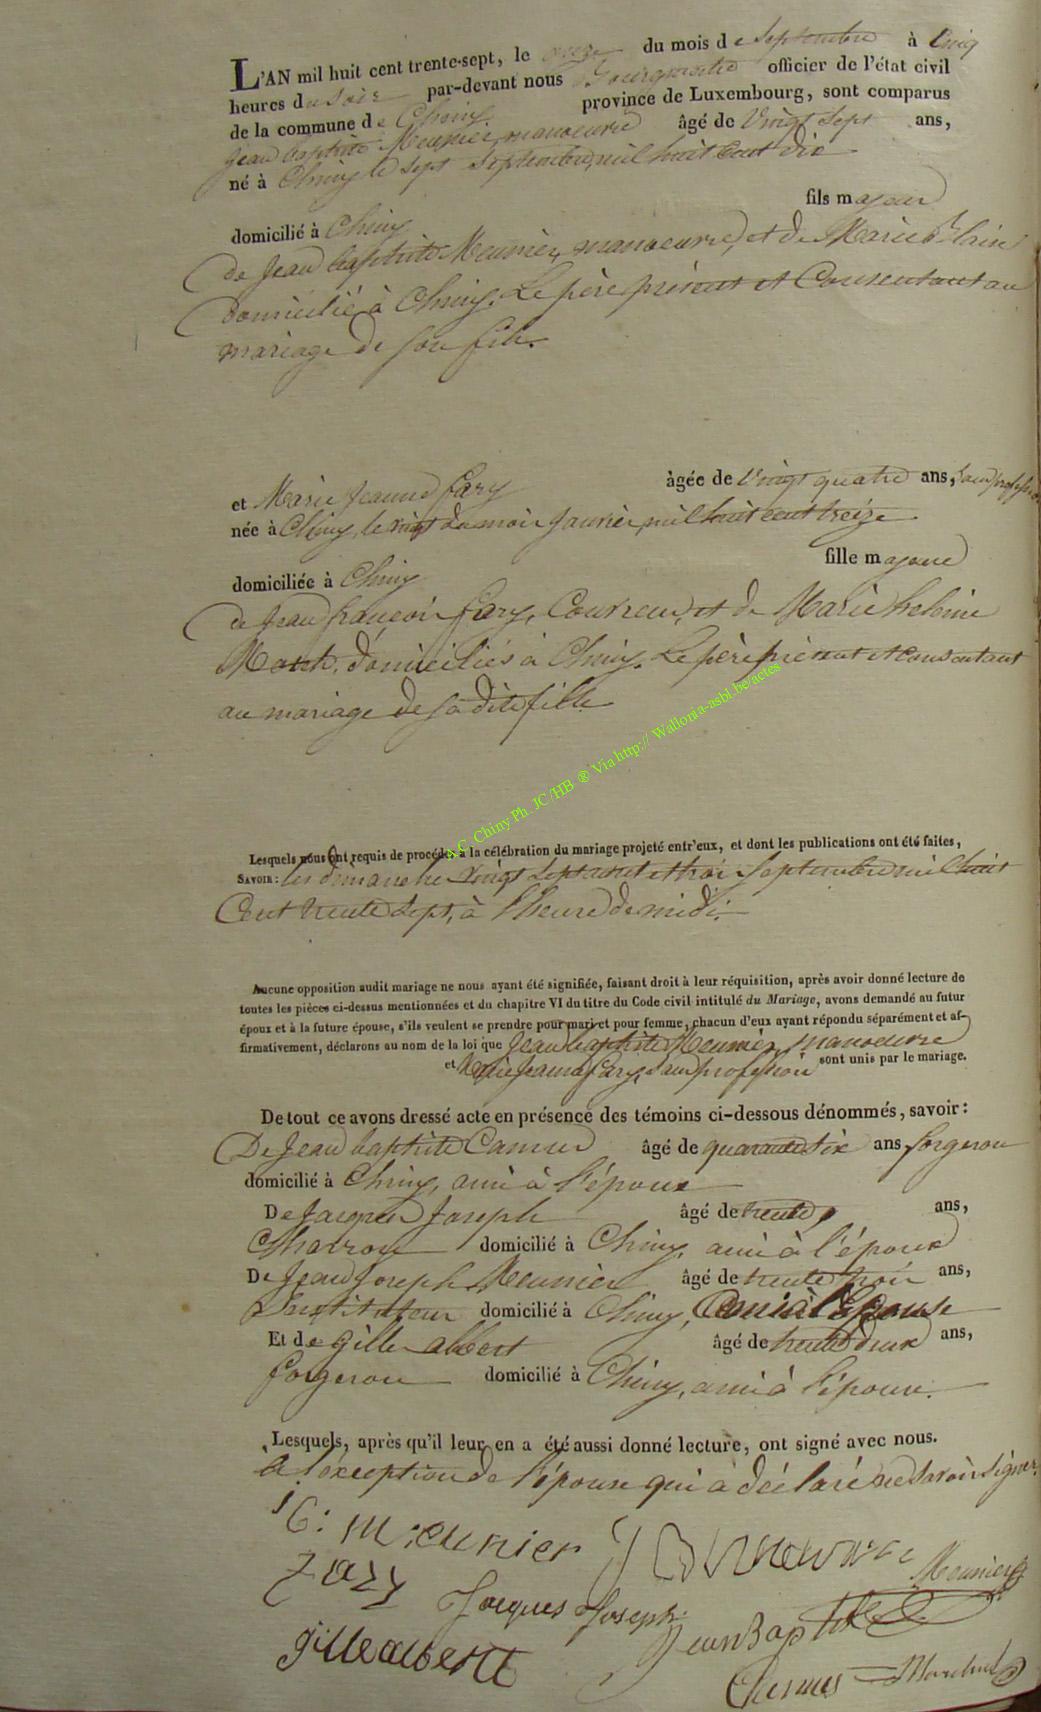 L'AN mil huit cent trente-sept, le onze du mois de Septembre à Cinq
heures du soir par-devant nous Bourgmestre officier de l'état civil
de la commune de Chiny province de Luxembourg, sont comparus
Jean baptiste Meunier, manoeuvre âgé de Vingt Sept ans,
né à Chiny le Sept Septembre, mil huit Cent dix
fils majeur
domicilié à Chiny
de Jean baptiste Meunier, manoeuvre, et de Marie
domicilié à Chiny. Le père présent et Consentant au
mariage de son fils.
et Marie Jeanne Fary âgée de Vingt quatre ans, sans profession
née à Chiny, le vingt du mois Janvier, mil huit cent treize
fille majeure
domiciliée à Chiny
de Jean françois Fary, Couvreur, et de Marie helenne
domiciliés à Chiny. Le père présent et consentant
au mariage de sa dite fille
A.C. Chiny Ph. JC/HB ® Via http:// Wallonia-asbl.be/actes
Lesquels nous ont requis de procéder à la célébration du mariage projeté entr'eux, et dont les publications ont été faites,
SAVOIR: les dimanche Vingt Sept aout et trois Septembre mil huit
Cent trente Sept, à l'heure de midi.
Aucune opposition audit mariage ne nous ayant été signifiée, faisant droit à leur réquisition, après avoir donné lecture de
toutes les pièces ci-dessus mentionnées et du chapitre VI du titre du Code civil intitulé du Mariage, avons demandé au futur
époux et à la future épouse, s'ils veulent se prendre pour mari et pour femme, chacun d'eux ayant répondu séparément et af-
firmativement, déclarons au nom de la loi que Jean baptiste Meunier, manoeuvre
et Marie Jeanne Fary, sans profession sont unis par le mariage.
De tout ce avons dressé acte en présence des témoins ci-dessous dénommés, savoir:
De Jean baptiste Camus âgé de quarante six ans, forgeron
domicilié à Chiny, ami à l'époux
De Jacques Joseph âgé de trente ans,
Charron domicilié à Chiny, ami à l'époux
De Jean Joseph Meunier âgé de trente trois ans,
Instituteur domicilié à Chiny, ami à l'épouse
Et de gille albert âgé de trente deux ans,
forgeron domicilié à Chiny, ami à l'époux.
Lesquels, après qu'il leur en a été aussi donné lecture, ont signé avec nous.
à l'éxception de l'épouse qui à déclaré ne savoir signer.
Meunier
Fary Meunier
Jacques Joseph
Jean Baptiste
gille albert
Camus